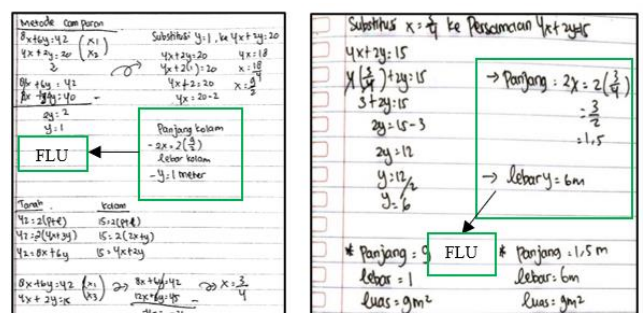 Metode Camparan
8x+6y=42 (x1
4x+2y=20 x2)
8x+6y=42
8x+4y=40
2y=2
y=1
Substitusi y=1, ke 4x+2y=20
4x+2y=20
4x+2(1)=20
4x+2=20
4x=20-2
4x=18
x=18/4
x=9/2
FLU
Panjang kolam
-2x=2(9/2)
lebar kolam
-y=1 meter
Tanah
42=2(p+l)
42=2(4x+3y)
42=8x+6y
kolam
15=2(p+l)
15=2(2x+y)
15=4x+2y
8x+6y=42 (x1
4x+2y=15 x3)
8x+6y=42
12x+6y=45
x=3/4
Substitus x=3/4 ke Persamaan 4x+2y=15
4x+2y=15
4(3/4)+2y=15
3+2y=15
2y=15-3
2y=12
y=12/2
y=6
→ Panjang = 2x = 2(3/4)
=3/2
=1,5
→ lebar y=6m
FLU
* Panjang = 9
lebar = 1
luas = 9m²
* Panjang = 1,5 m
lebar = 6m
luas = 9m²